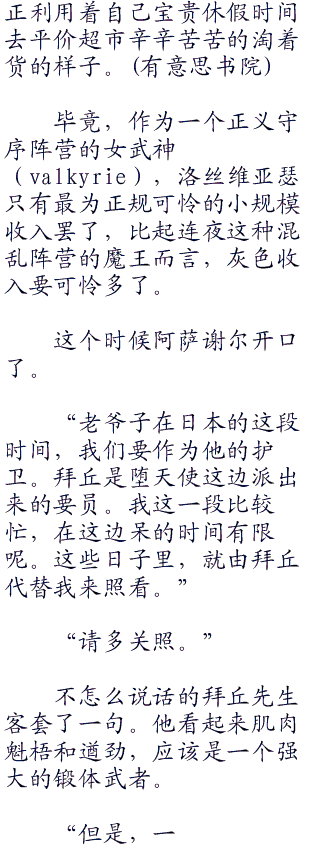 正利用着自己宝贵休假时间
去平价超市辛辛苦苦的淘着
货的样子。(有意思书院)
毕竟，作为一个正义守
序阵营的女武神
（valkyrie），洛丝维亚瑟
只有最为正规可怜的小规模
收入罢了，比起连夜这种混
乱阵营的魔王而言，灰色收
入要可怜多了。
这个时候阿萨谢尔开口
了。
“老爷子在日本的这段
时间，我们要作为他的护
卫。拜丘是堕天使这边派出
来的要员。我这一段比较
忙，在这边呆的时间有限
呢。这些日子里，就由拜丘
代替我来照看。”
“请多关照。”
不怎么说话的拜丘先生
客套了一句。他看起来肌肉
魁梧和遒劲，应该是一个强
大的锻体武者。
“但是，一